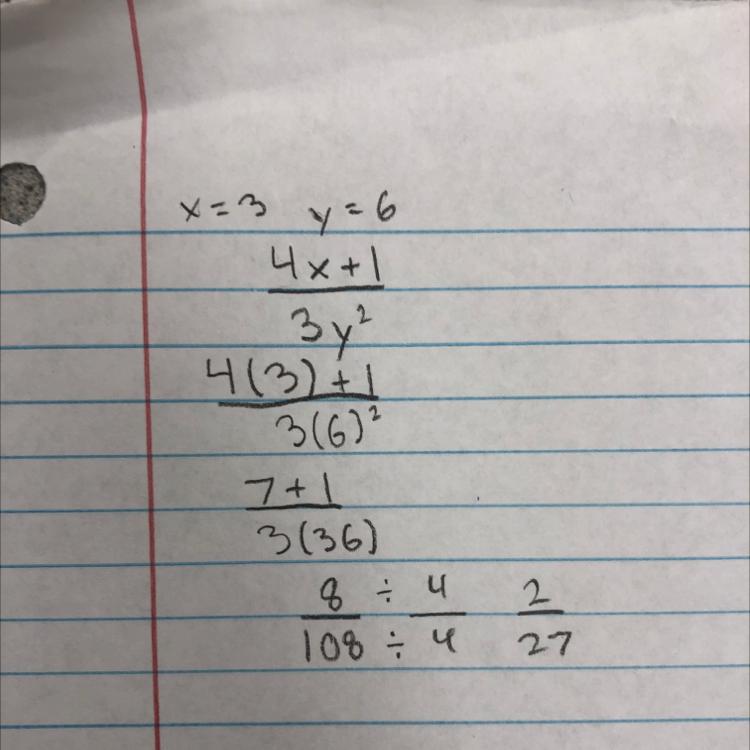 x = 3 y = 6
4x + 1
3y²
4(3) + 1
3(6)²
7 + 1
3(36)
8 ÷ 4 2
108 ÷ 4 27